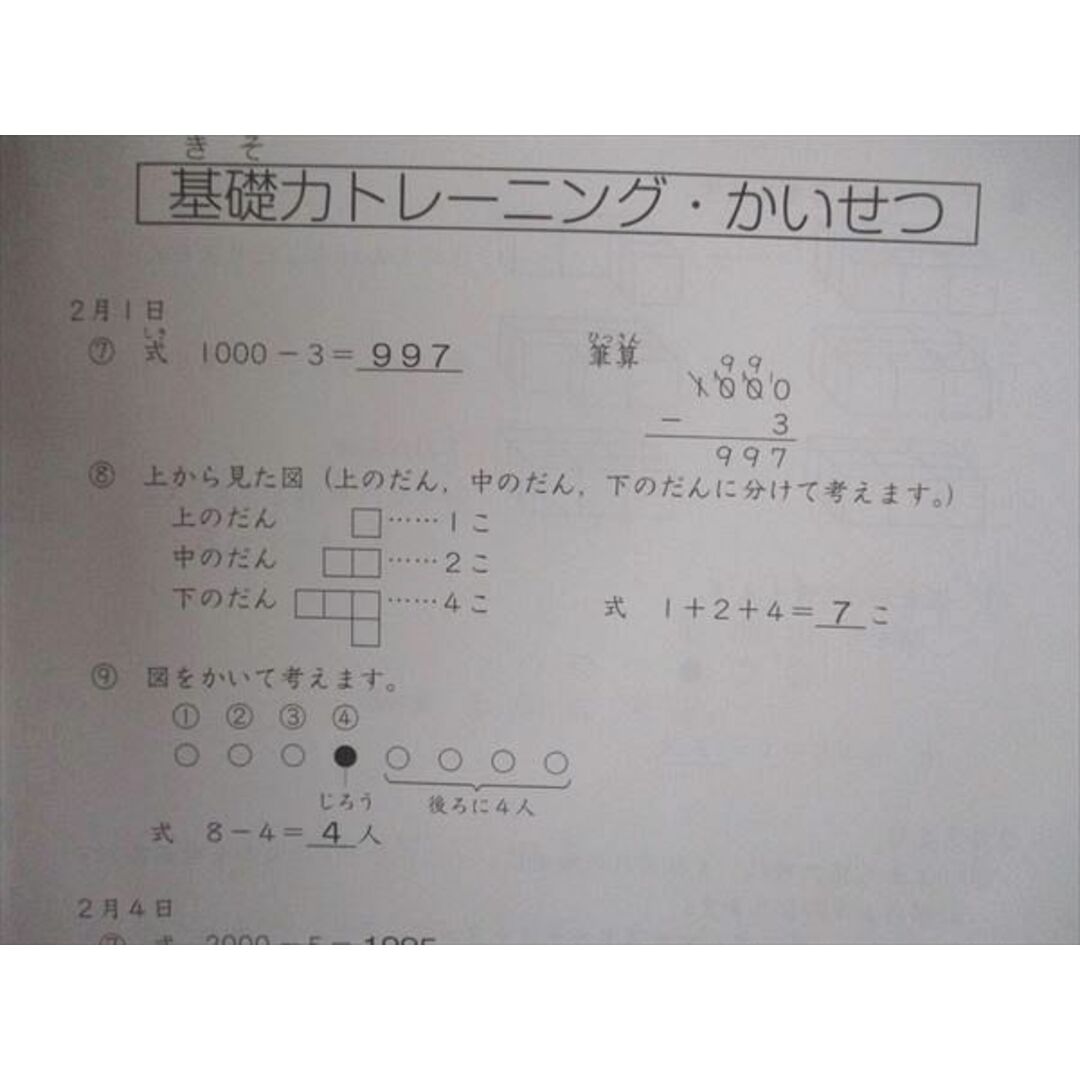 きそ
基礎力トレーニング・かいせつ
2月1日
しき
⑦ 式 1000－3＝997
ひっさん
筆算
99
1000
－ 3
997
⑧ 上から見た図（上のだん，中のだん，下のだんに分けて考えます。）
上のだん □……1こ
中のだん ……2こ
下のだん ……4こ
式 1＋2＋4＝7こ
⑨ 図をかいて考えます。
① ② ③ ④
○ ○ ○ ● ○ ○ ○ ○
じろう
後ろに4人
式 8－4＝4人
2月4日
⑦ 式 2000－5＝1995